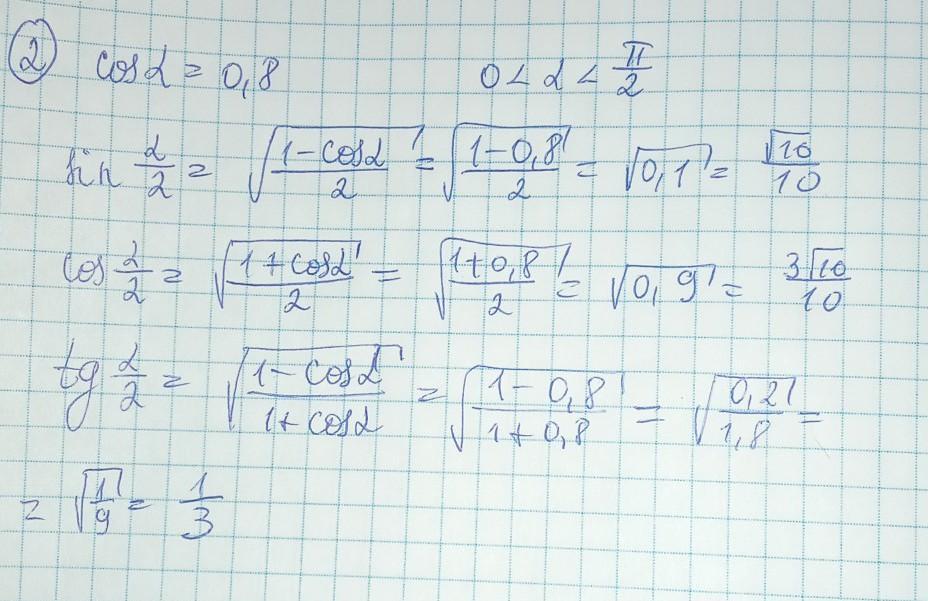 ② cos α = 0,8 0 < α < π/2
sin α/2 = √((1-cosα)/2) = √((1-0,8)/2) = √0,1 = √10/10
cos α/2 = √((1+cosα)/2) = √((1+0,8)/2) = √0,9 = 3√10/10
tg α/2 = √((1-cosα)/(1+cosα)) = √((1-0,8)/(1+0,8)) = √(0,2/1,8) =
= √(1/9) = 1/3